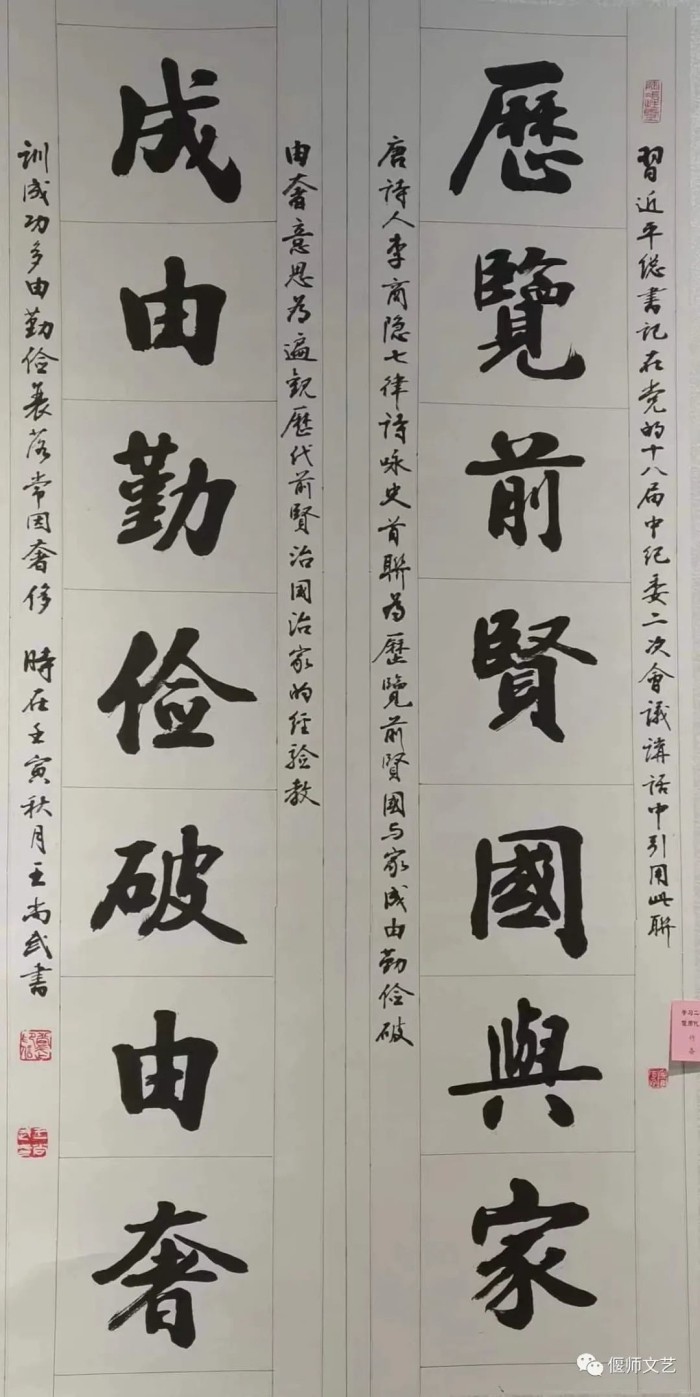 習近平總書記在党的十八届中纪委二次會議講话中引用此联
歷覽前賢國與家
唐詩人李商隐七律詩咏史首联為歷覽前賢國与家成由勤俭破
由奢意思為遍观歷代前賢治國治家的经验教
成由勤儉破由奢
训成功多由勤俭衰落常因奢侈 時在壬寅秋月王尚武書
偃师文艺